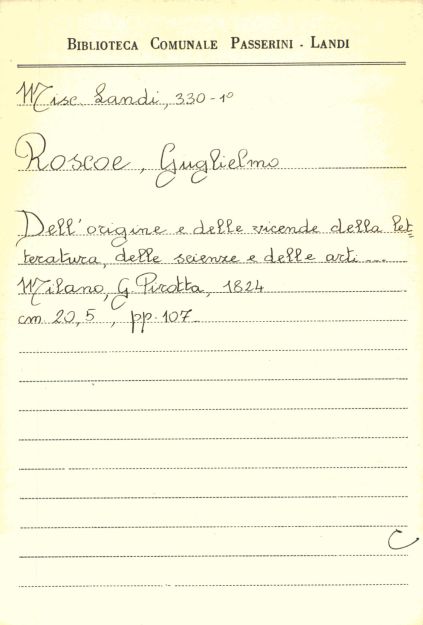 BIBLIOTECA COMUNALE PASSERINI - LANDI
Misc. Landi, 330-1º
Roscoe, Guglielmo
Dell'origine e delle vicende della let=
teratura, delle scienze e delle arti ...
Milano, G. Pirotta, 1824
cm 20,5, pp. 107
C